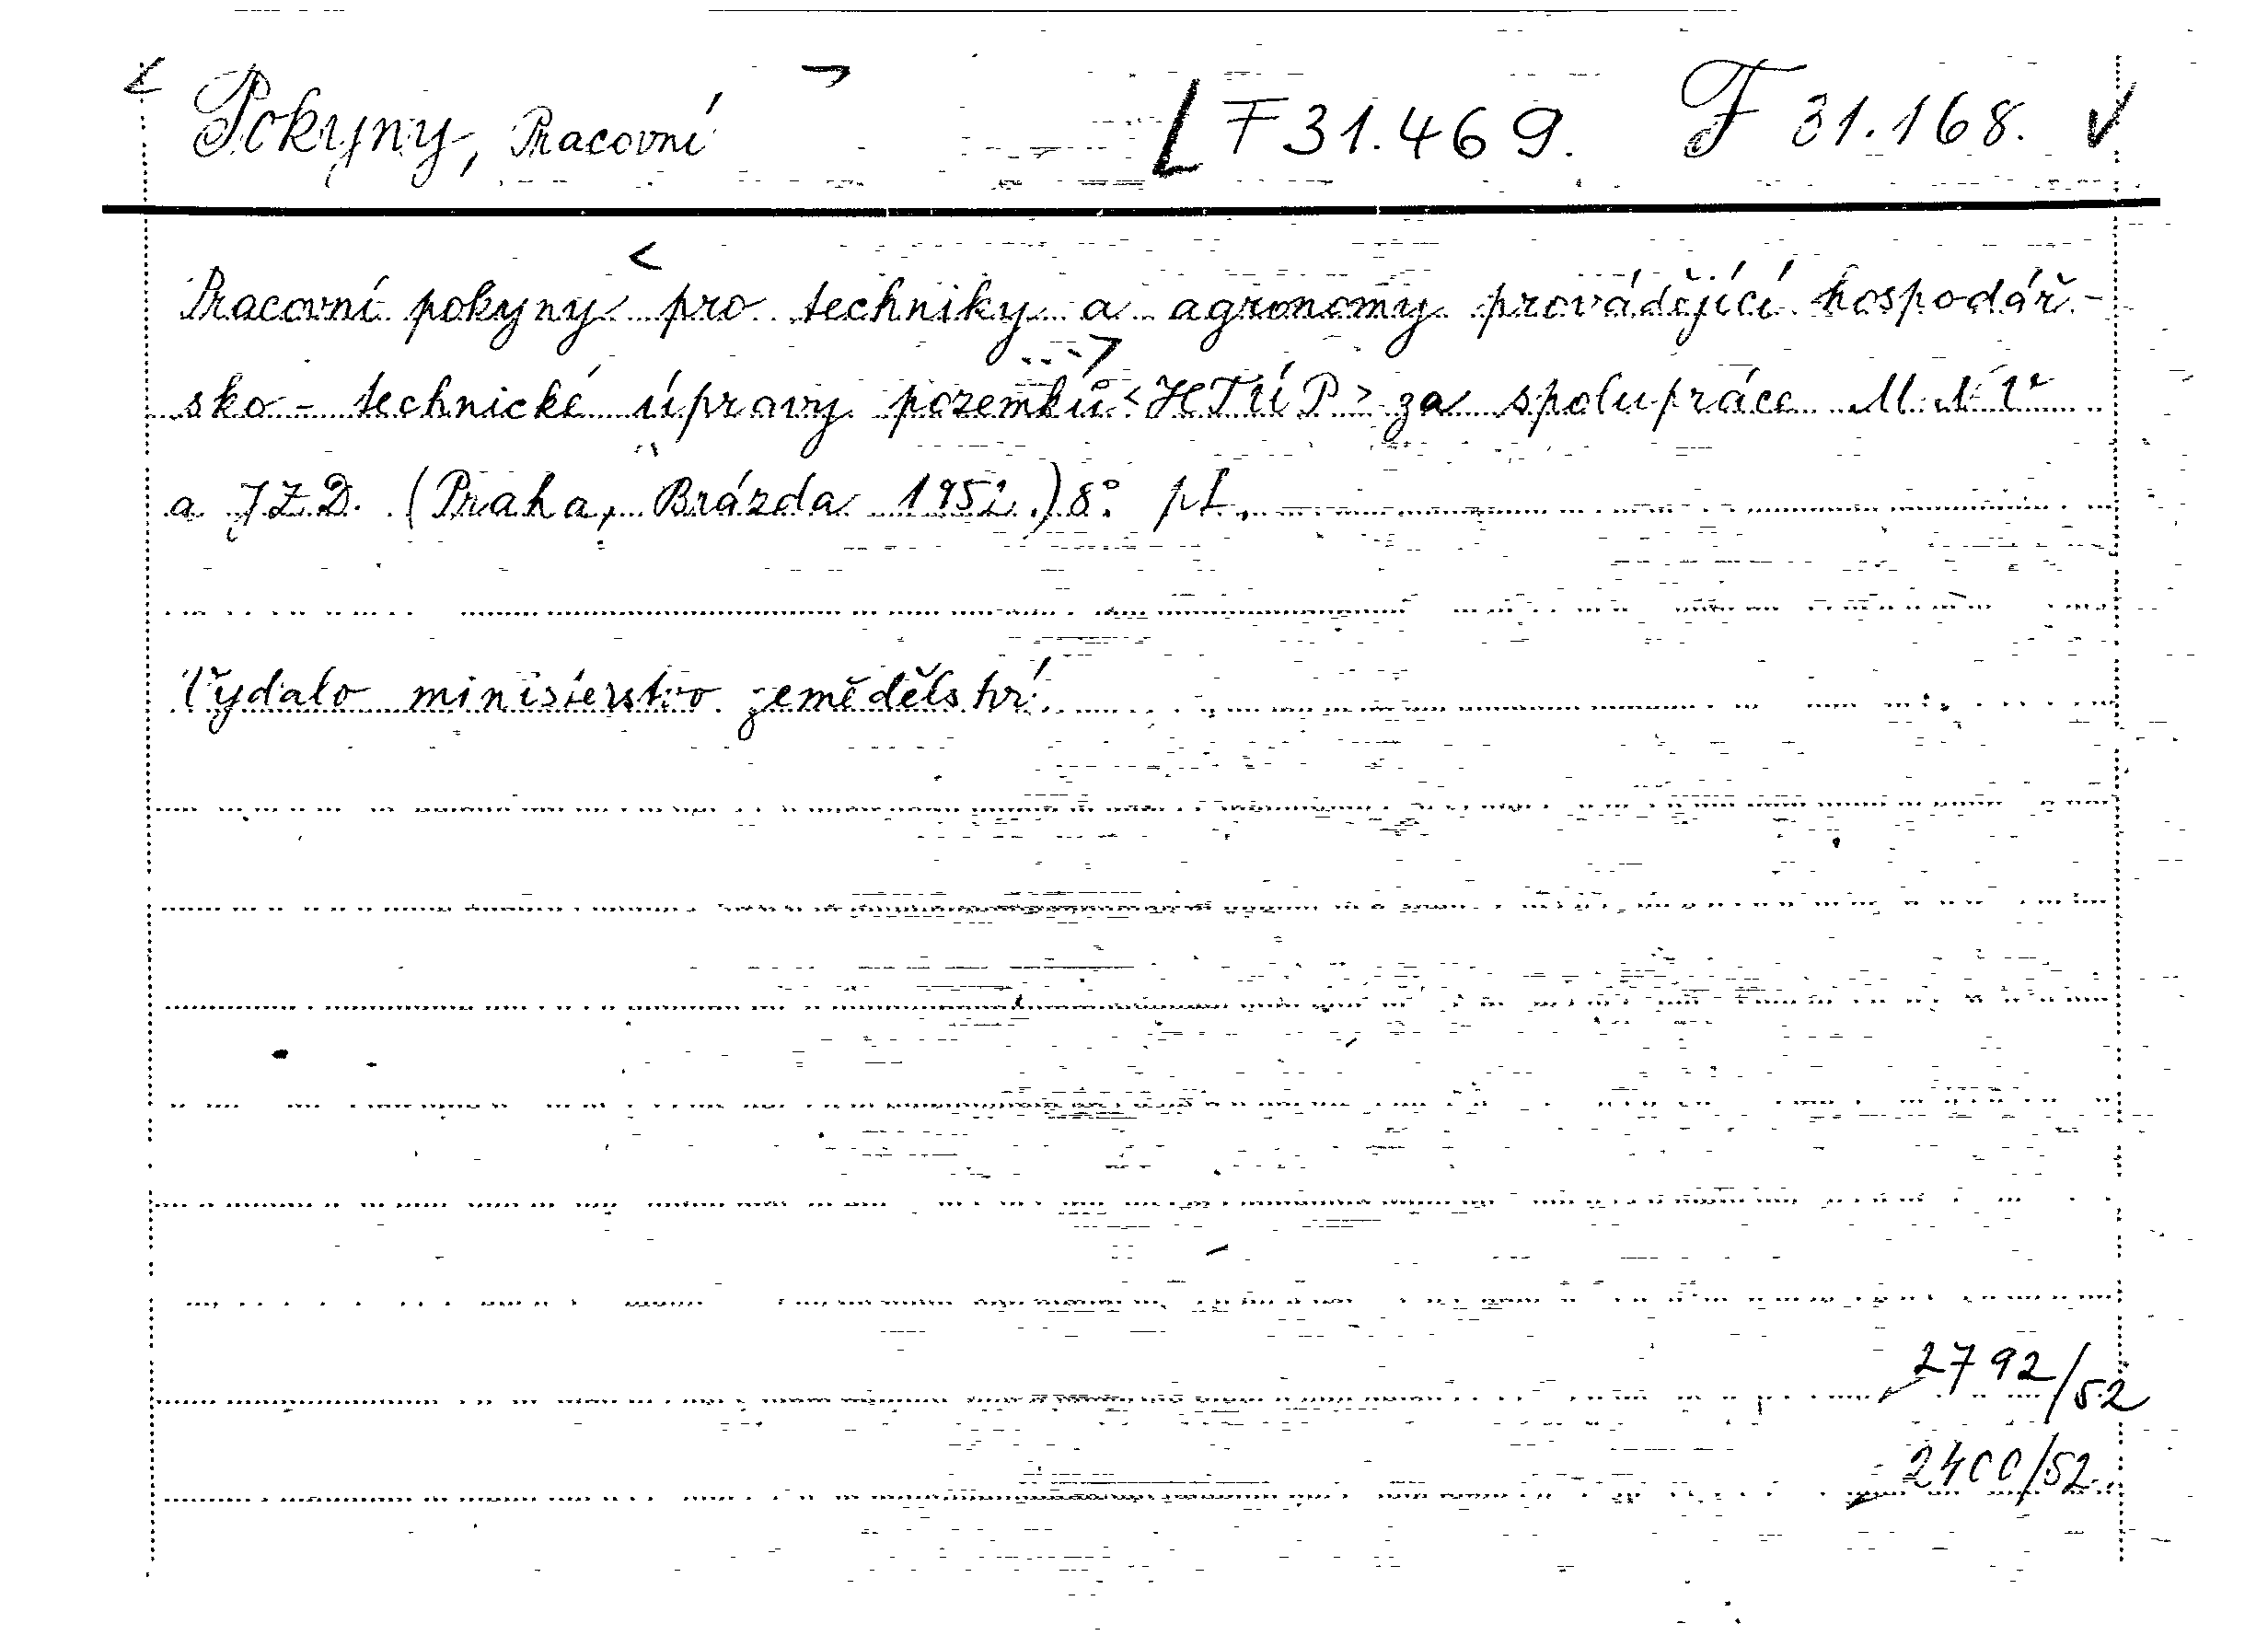 Pokyny, Pracovní [ F 31.469. F 31.168. ✓
Pracovní pokyny pro techniky a agronomy provádějící hospodář-
sko-technické úpravy pozemků <HTÚP> za spolupráce MNV
a JZD. (Praha, Brázda 1952.) 8° pl.
Vydalo ministerstvo zemědělství.
2792/52
2400/52.